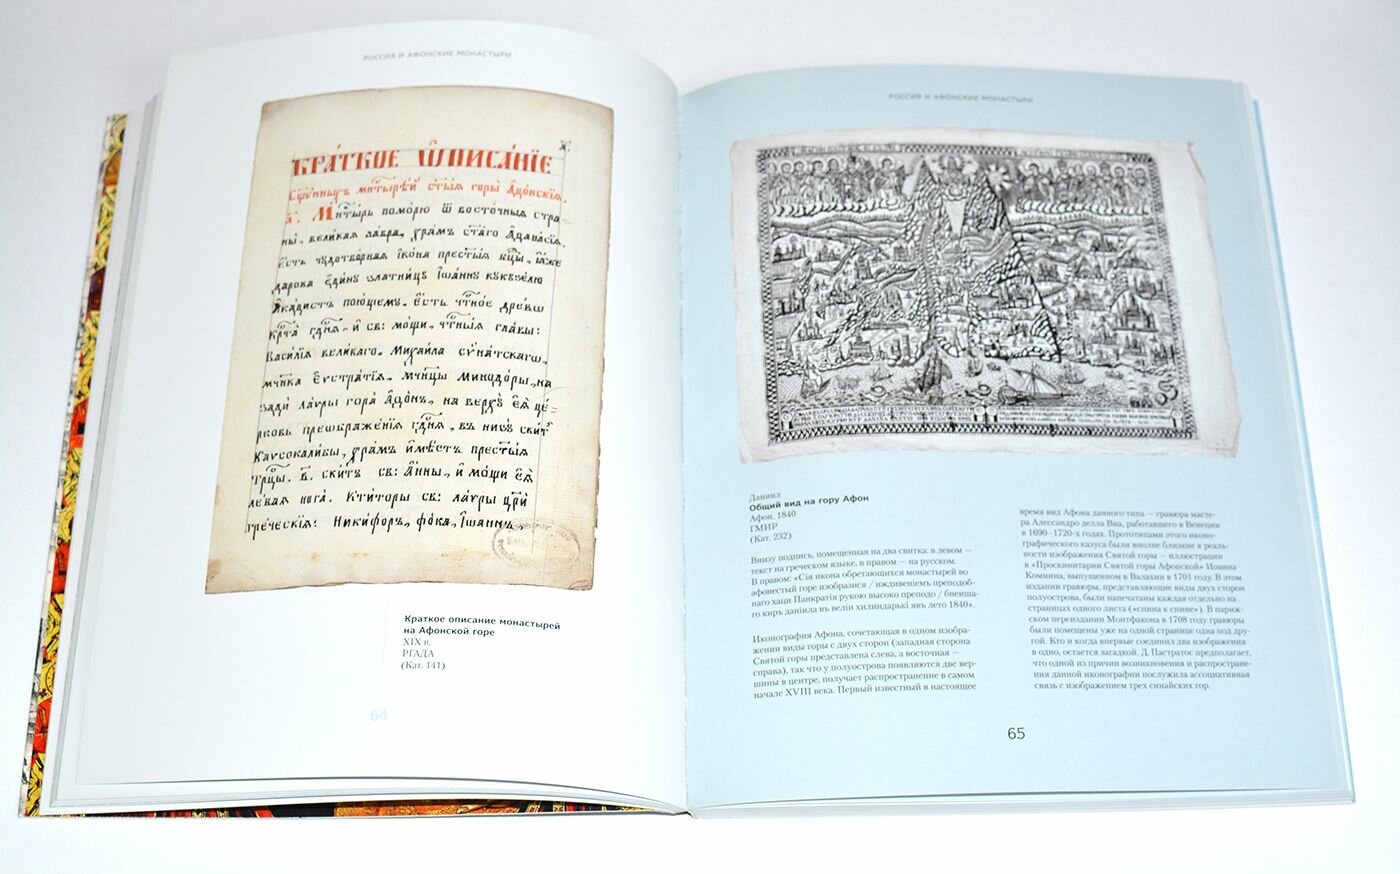 РОССИЯ И АФОНСКИЕ МОНАСТЫРИ
КРА́ТКОЕ Ѿписа́нїе
горы̀ Аѳо́нскїѧ.
Мн҃тырь помо́рю ѿ восто́чныѧ стра-
ны̀, вели́каѧ ла́вра, хра́мъ ст҃а́гѡ Аѳана́сїѧ.
Е҆́сть чꙋдотво́рнаѧ і҆ко́на прест҃ы́ѧ
дарова̀ є҆ди́нꙋ зла́тницꙋ І҆ѡа́ннꙋ кꙋкꙋзе́лю
А҆ка́ѳистъ пою́щемꙋ. Е҆́сть дре́во
гдⷭ҇нѧ. и҆ св: мо́щи. главы̀:
Васи́лїѧ вели́кагѡ. Михаи́ла сѷна́тскагѡ,
мч҃нка Еѵстра́тїѧ. мч҃нцы Минодо́ры, на
задѝ ла́ѵры гора̀ Аѳо́нъ, на верхꙋ̀ є҆ѧ̀ це́-
рковь преѡбраже́нїѧ гдⷭ҇нѧ, въ низꙋ̀ ски́тъ
Каѵсокали́бы, хра́мъ и҆мѣ́етъ прест҃ы́ѧ
Трⷪ҇цы. в҃. ски́тъ св: А҆́нны, и҆ мо́щи є҆ѧ̀
лѣ́ваѧ нога̀. Кти́торы св: ла́ѵры цр҃ѝ
гре́ческїѧ: Ники́форъ, фо́ка, І҆ѡа́ннъ,
Краткое описание монастырей
на Афонской горе
XIX в.
РГАДА
(Кат. 141)
64
РОССИЯ И АФОНСКИЕ МОНАСТЫРИ
Даниил
Общий вид на гору Афон
Афон. 1840
ГМИР
(Кат. 232)
Внизу подпись, помещенная на два свитка: в левом —
текст на греческом языке, в правом — на русском.
В правом: «Сія икона обретающихся монастырей во
афонестый горе изобразися / иждивеніем преподоб-
наго хаци Панкратія рукою высоко преподо / бнеиша-
го киръ даніила въ веліи хилиндаркі явъ лето 1840».
Иконография Афона, сочетающая в одном изобра-
жении виды горы с двух сторон (западная сторона
Святой горы представлена слева, а восточная —
справа), так что у полуострова появляются две вер-
шины в центре, получает распространение в самом
начале XVIII века. Первый известный в настоящее
время вид Афона данного типа — гравюра масте-
ра Алессандро делла Виа, работавшего в Венеции
в 1690–1720-х годах. Прототипами этого иконо-
графического казуса были вполне близкие к реаль-
ности изображения Святой горы — иллюстрации
в «Проскинитарии Святой горы Афонской» Иоанна
Комнина, выпущенном в Валахии в 1701 году. В этом
издании гравюры, представляющие виды двух сторон
полуострова, были напечатаны каждая отдельно на
страницах одного листа («спина к спине»). В париж-
ском переиздании Монтфакона в 1708 году гравюры
были помещены уже на одной странице одна под дру-
гой. Кто и когда впервые соединил два изображения
в одно, остается загадкой. Д. Пастратос предполагает,
что одной из причин возникновения и распростране-
ния данной иконографии послужила ассоциативная
связь с изображением трех синайских гор.
65